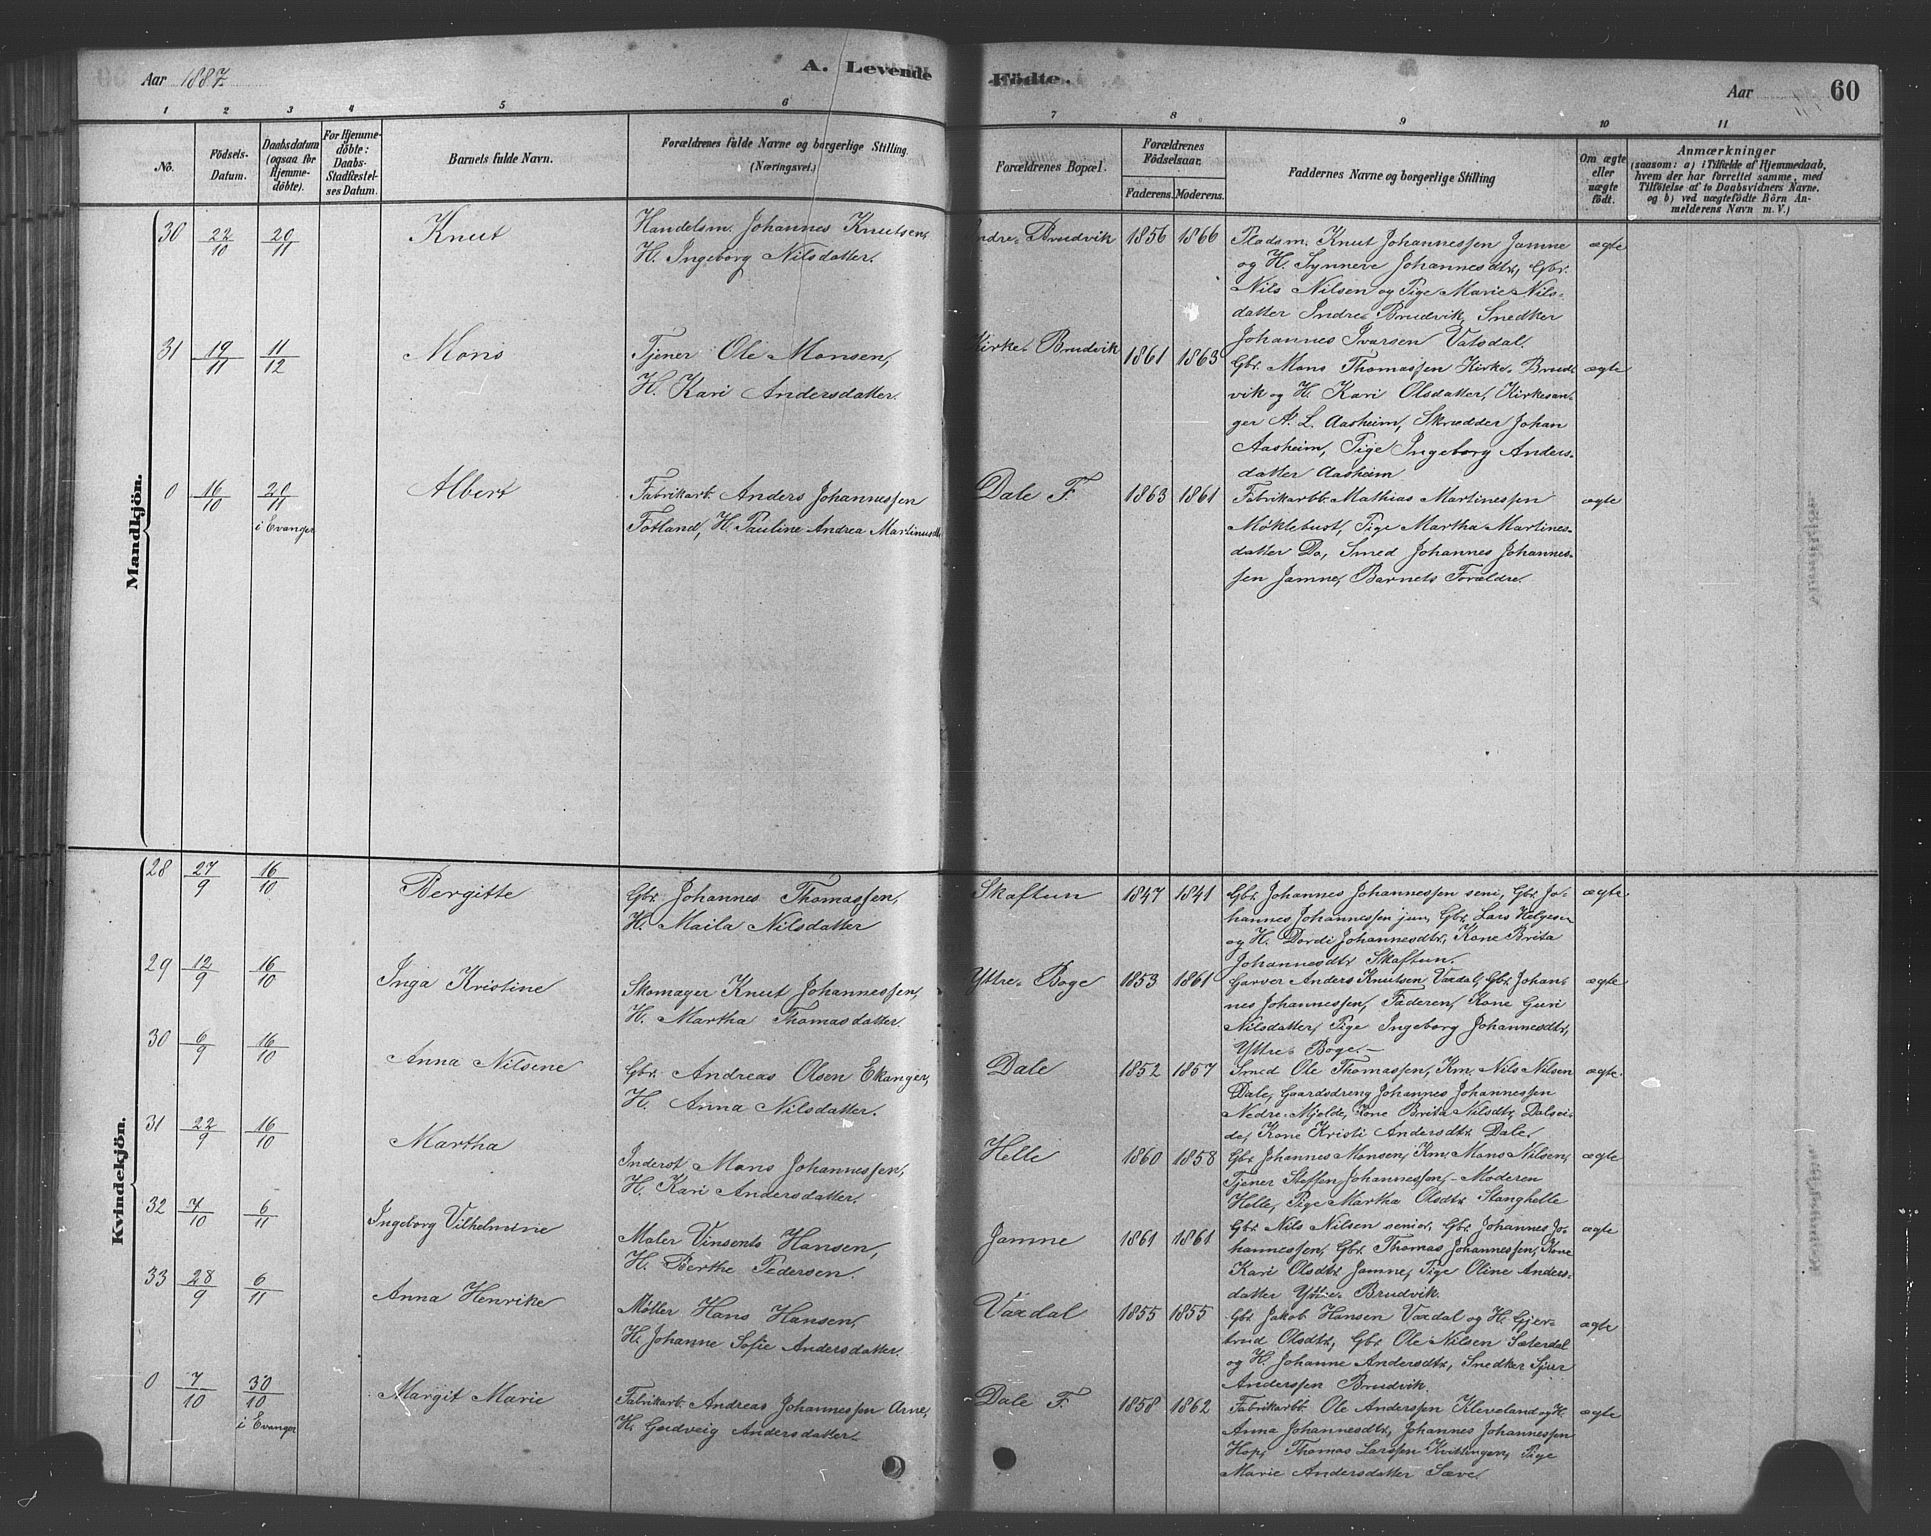 Aar 1887. A. Levende Födte. Aar 60
1 2 3 4 5 6 7 8 9 10 11
No.
Födsels-
Datum.
Daabsdatum
(ogsaa for
Hjemme-
döbte).
For Hjemme-
döbte:
Daabs-
Stadfæstel-
ses Datum.
Barnets fulde Navn.
Forældrenes fulde Navne og borgerlige Stilling
(Næringsvei.)
Forældrenes Bopæl.
Forældrenes
Födselsaar.
Faderens. Moderens.
Faddernes Navne og borgerlige Stilling
Om ægte
eller
uægte
födt.
Anmærkninger
(saasom: a) i Tilfælde af Hjemmedaab,
hvem der har forrettet samme, med
Tilföielse af to Daabsvidners Navne.
og b) ved uægtefödte Börn An-
melderens Navn m. V.)
Mandkjön.
30 22/10 20/11 Knut
Handelsm. Johannes Knutsen,
H. Ingeborg Nilsdatter.
Indre-Brudvik 1856 1866
Pladsm. Knut Johannessen Jamne
og H. Synneve Johannesdtr, Gbr.
Nils Nilsen og Pige Marie Nils-
datter Indre Brudvik, Snedker
Johannes Ivarsen Vatsdal.
ægte
31 19/11 11/12 Mons
Tjener Ole Monsen,
H. Kari Andersdatter.
Kirke-Brudvik 1861 1863
Gbr. Mons Thomassen Kirke-Brud-
vik og H. Kari Olsdatter, Kirkesan-
ger A. L. Aasheim, Skrædder Johan
Aasheim, Pige Ingeborg Anders-
datter Aasheim
ægte
0 16/10 20/11
i Evanger
Albert
Fabrikarb. Anders Johannessen
Fotland, H. Pauline Andrea Martinusdtr.
Dale F. 1863 1861
Fabrikarbb. Mathias Martinessen
Møklebust, Pige Martha Martines-
datter Do, Smed Johannes Johannes-
sen Jamne, Barnets Forældre.
ægte
Kvindekjön.
28 27/9 16/10 Bergitte
Gbr. Johannes Thomassen,
H. Maila Nilsdatter
Skaftun 1847 1841
Gbr. Johannes Johannessen seni, Gbr. Jo-
hannes Johannessen jun, Gbr. Lars Helgesen
og H. Dordi Johannesdtr, Kone Brita
Johannesdtr Skaftun.
ægte
29 12/9 16/10 Inga Kristine
Skomager Knut Johannessen,
H. Martha Thomasdatter.
Yttre-Boge 1853 1861
Garver Anders Knutsen Vaxdal, Gbr. Johan-
nes Johannessen, Faderen, Kone Guri
Nilsdatter, Pige Ingeborg Johannesdtr,
Yttre-Boge.-
ægte
30 6/9 16/10 Anna Nilsine
Gbr. Andreas Olsen Ekanger,
H. Anna Nilsdatter.
Dale 1852 1857
Smed Ole Thomassen, Km. Nils Nilsen
Dale, Gaardsdreng Johannes Johannessen
Nedre-Mjelde, Kone Brita Nilsdtr. Dalsei-
de, Kone Kristi Andersdtr. Dale.
ægte.
31 22/9 16/10 Martha
Inderst Mons Johannessen,
H. Kari Andersdatter.
Helle 1860 1858
Gbr. Johannes Monsen, Km. Mons Nilsen,
Tjener Steffen Johannessen,- Moderen
Helle, Pige Martha Olsdtr. Stanghelle
ægte
32 7/10 6/11 Ingeborg Vilhelmine
Maler Vinsents Hansen,
H. Berthe Pedersen.
Jamne 1861 1861
Gbr. Nils Nilsen senior, Gbr. Johannes Jo-
hannessen, Gbr. Thomas Johannessen, Kone
Kari Olsdtr. Jamne, Pige Oline Anders-
datter Yttre-Brudvik.
ægte
33 28/9 6/11 Anna Henrike
Møller Hans Hansen,
H. Johanne Sofie Andersdatter.
Vaxdal 1855 1855
Gbr. Jakob Hansen Vaxdal og H. Gjer-
trud Olsdtr, Gbr. Ole Nilsen Sæterdal
og H. Johanne Andersdtr, Snedker Sjur
Anderssen Brudvik.
ægte
0 7/10 30/10
i Evanger
Margit Marie
Fabrikarb. Andreas Johannessen Arne,
H. Gudveig Andersdatter.
Dale F. 1858 1862
Fabrikarbb. Ole Anderssen Kleveland og H.
Anna Johannesdtr, Johannes Johannessen
Hop, Thomas Larssen Kvittingen, Pige
Marie Andersdatter Sæve.
ægte